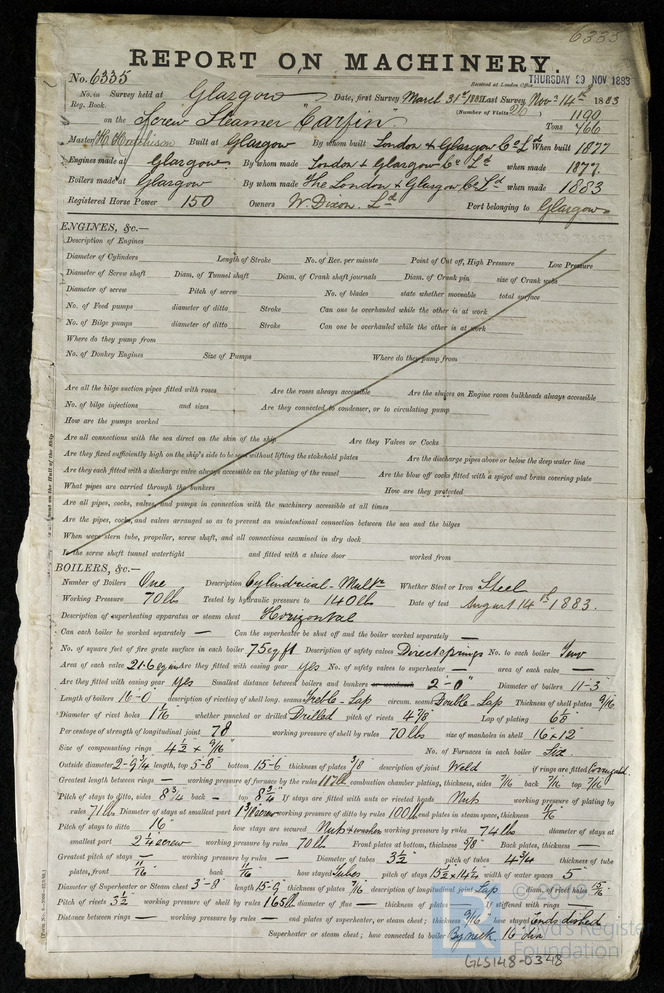 6335
REPORT ON MACHINERY.
No. 6335
Received at London Office
THURSDAY 29 NOV 1883
No. in Survey held at Glasgow Date, first Survey March 31st 1883 Last Survey Nov. 14th 1883
Reg. Book. (Number of Visits 26)
on the Screw Steamer "Carfin" Tons 1190 766
Master H. Hutchison Built at Glasgow By whom built London & Glasgow Co. Ld. When built 1877
Engines made at Glasgow By whom made London & Glasgow Co. Ld when made 1877.
Boilers made at Glasgow By whom made The London & Glasgow Co. Ld. when made 1883
Registered Horse Power 150 Owners W. Dixon. Ld Port belonging to Glasgow
ENGINES, &c.—
Description of Engines
Diameter of Cylinders Length of Stroke No. of Rev. per minute Point of Cut off, High Pressure Low Pressure
Diameter of Screw shaft Diam. of Tunnel shaft Diam. of Crank shaft journals Diam. of Crank pin size of Crank webs
Diameter of screw Pitch of screw No. of blades state whether moveable total surface
No. of Feed pumps diameter of ditto Stroke Can one be overhauled while the other is at work
No. of Bilge pumps diameter of ditto Stroke Can one be overhauled while the other is at work
Where do they pump from
No. of Donkey Engines Size of Pumps Where do they pump from
Are all the bilge suction pipes fitted with roses Are the roses always accessible Are the sluices on Engine room bulkheads always accessible
No. of bilge injections and sizes Are they connected to condenser, or to circulating pump
How are the pumps worked
Are all connections with the sea direct on the skin of the ship Are they Valves or Cocks
Are they fixed sufficiently high on the ship's side to be seen without lifting the stokehold plates Are the discharge pipes above or below the deep water line
Are they each fitted with a discharge valve always accessible on the plating of the vessel Are the blow off cocks fitted with a spigot and brass covering plate
What pipes are carried through the bunkers How are they protected
Are all pipes, cocks, valves, and pumps in connection with the machinery accessible at all times
Are the pipes, cocks, and valves arranged so as to prevent an unintentional connection between the sea and the bilges
When were stern tube, propeller, screw shaft, and all connections examined in dry dock
Is the screw shaft tunnel watertight and fitted with a sluice door worked from
BOILERS, &c.—
Number of Boilers One Description Cylindrical Mult. Whether Steel or Iron Steel
Working Pressure 70 lb Tested by hydraulic pressure to 140 lb Date of test August 14th 1883.
Description of superheating apparatus or steam chest Horizontal
Can each boiler be worked separately — Can the superheater be shut off and the boiler worked separately —
No. of square feet of fire grate surface in each boiler 75 sq ft Description of safety valves Direct Springs No. to each boiler Two
Area of each valve 21.6 sq in Are they fitted with easing gear Yes No. of safety valves to superheater — area of each valve —
Are they fitted with easing gear Yes Smallest distance between boilers and bunkers 2'-0" Diameter of boilers 11-3
Length of boilers 16-0 description of riveting of shell long. seams Treble-Lap circum. seams Double-Lap Thickness of shell plates 9/16
Diameter of rivet holes 1 1/16 whether punched or drilled Drilled pitch of rivets 4 7/8 Lap of plating 6 5/8
Per centage of strength of longitudinal joint 78 working pressure of shell by rules 70 lbs size of manholes in shell 16 x 12
Size of compensating rings 4 1/2 x 9/16 No. of Furnaces in each boiler Six
Outside diameter 2-9 3/4 length, top 5-8 bottom 15-6 thickness of plates 3/8 description of joint Weld if rings are fitted Corrugated
Greatest length between rings — working pressure of furnace by the rules 117 lb combustion chamber plating, thickness, sides 7/16 back 7/16 top 7/16
Pitch of stays to ditto, sides 8 3/4 back — top 8 3/4 If stays are fitted with nuts or riveted heads Nuts working pressure of plating by
rules 71 lb Diameter of stays at smallest part 1 3/8 screw working pressure of ditto by rules 100 lb end plates in steam space, thickness 11/16
Pitch of stays to ditto 16 how stays are secured Nuts & washers working pressure by rules 74 lbs diameter of stays at
smallest part 2 1/4 screw working pressure by rules 70 lb Front plates at bottom, thickness 5/8 Back plates, thickness —
Greatest pitch of stays — working pressure by rules — Diameter of tubes 3 1/2 pitch of tubes 4 3/4 thickness of tube
plates, front 11/16 back 11/16 how stayed Tubes pitch of stays 15 1/2 x 14 1/4 width of water spaces 5
Diameter of Superheater or Steam chest 3'-8 length 15-9 thickness of plates 7/16 description of longitudinal joint Lap diam. of rivet holes 15/16
Pitch of rivets 3 1/2 working pressure of shell by rules 165 lb diameter of flue — thickness of plates — if stiffened with rings —
Distance between rings — working pressure by rules — end plates of superheater, or steam chest; thickness 9/16 how stayed Ends dished
Superheater or steam chest; how connected to boiler By neck 16 dia
© 2019
Lloyd's Register
Foundation
GLS148-0348